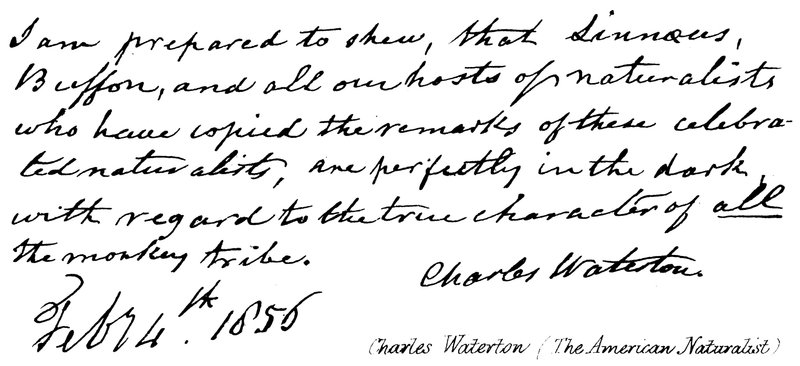 I am prepared to shew, that Linnæus,
Buffon, and all our hosts of naturalists
who have copied the remarks of these celebra-
ted naturalists, are perfectly in the dark,
with regard to the true character of all
the monkey tribe.
Charles Waterton.
Feby 4th. 1856
Charles Waterton (The American Naturalist)